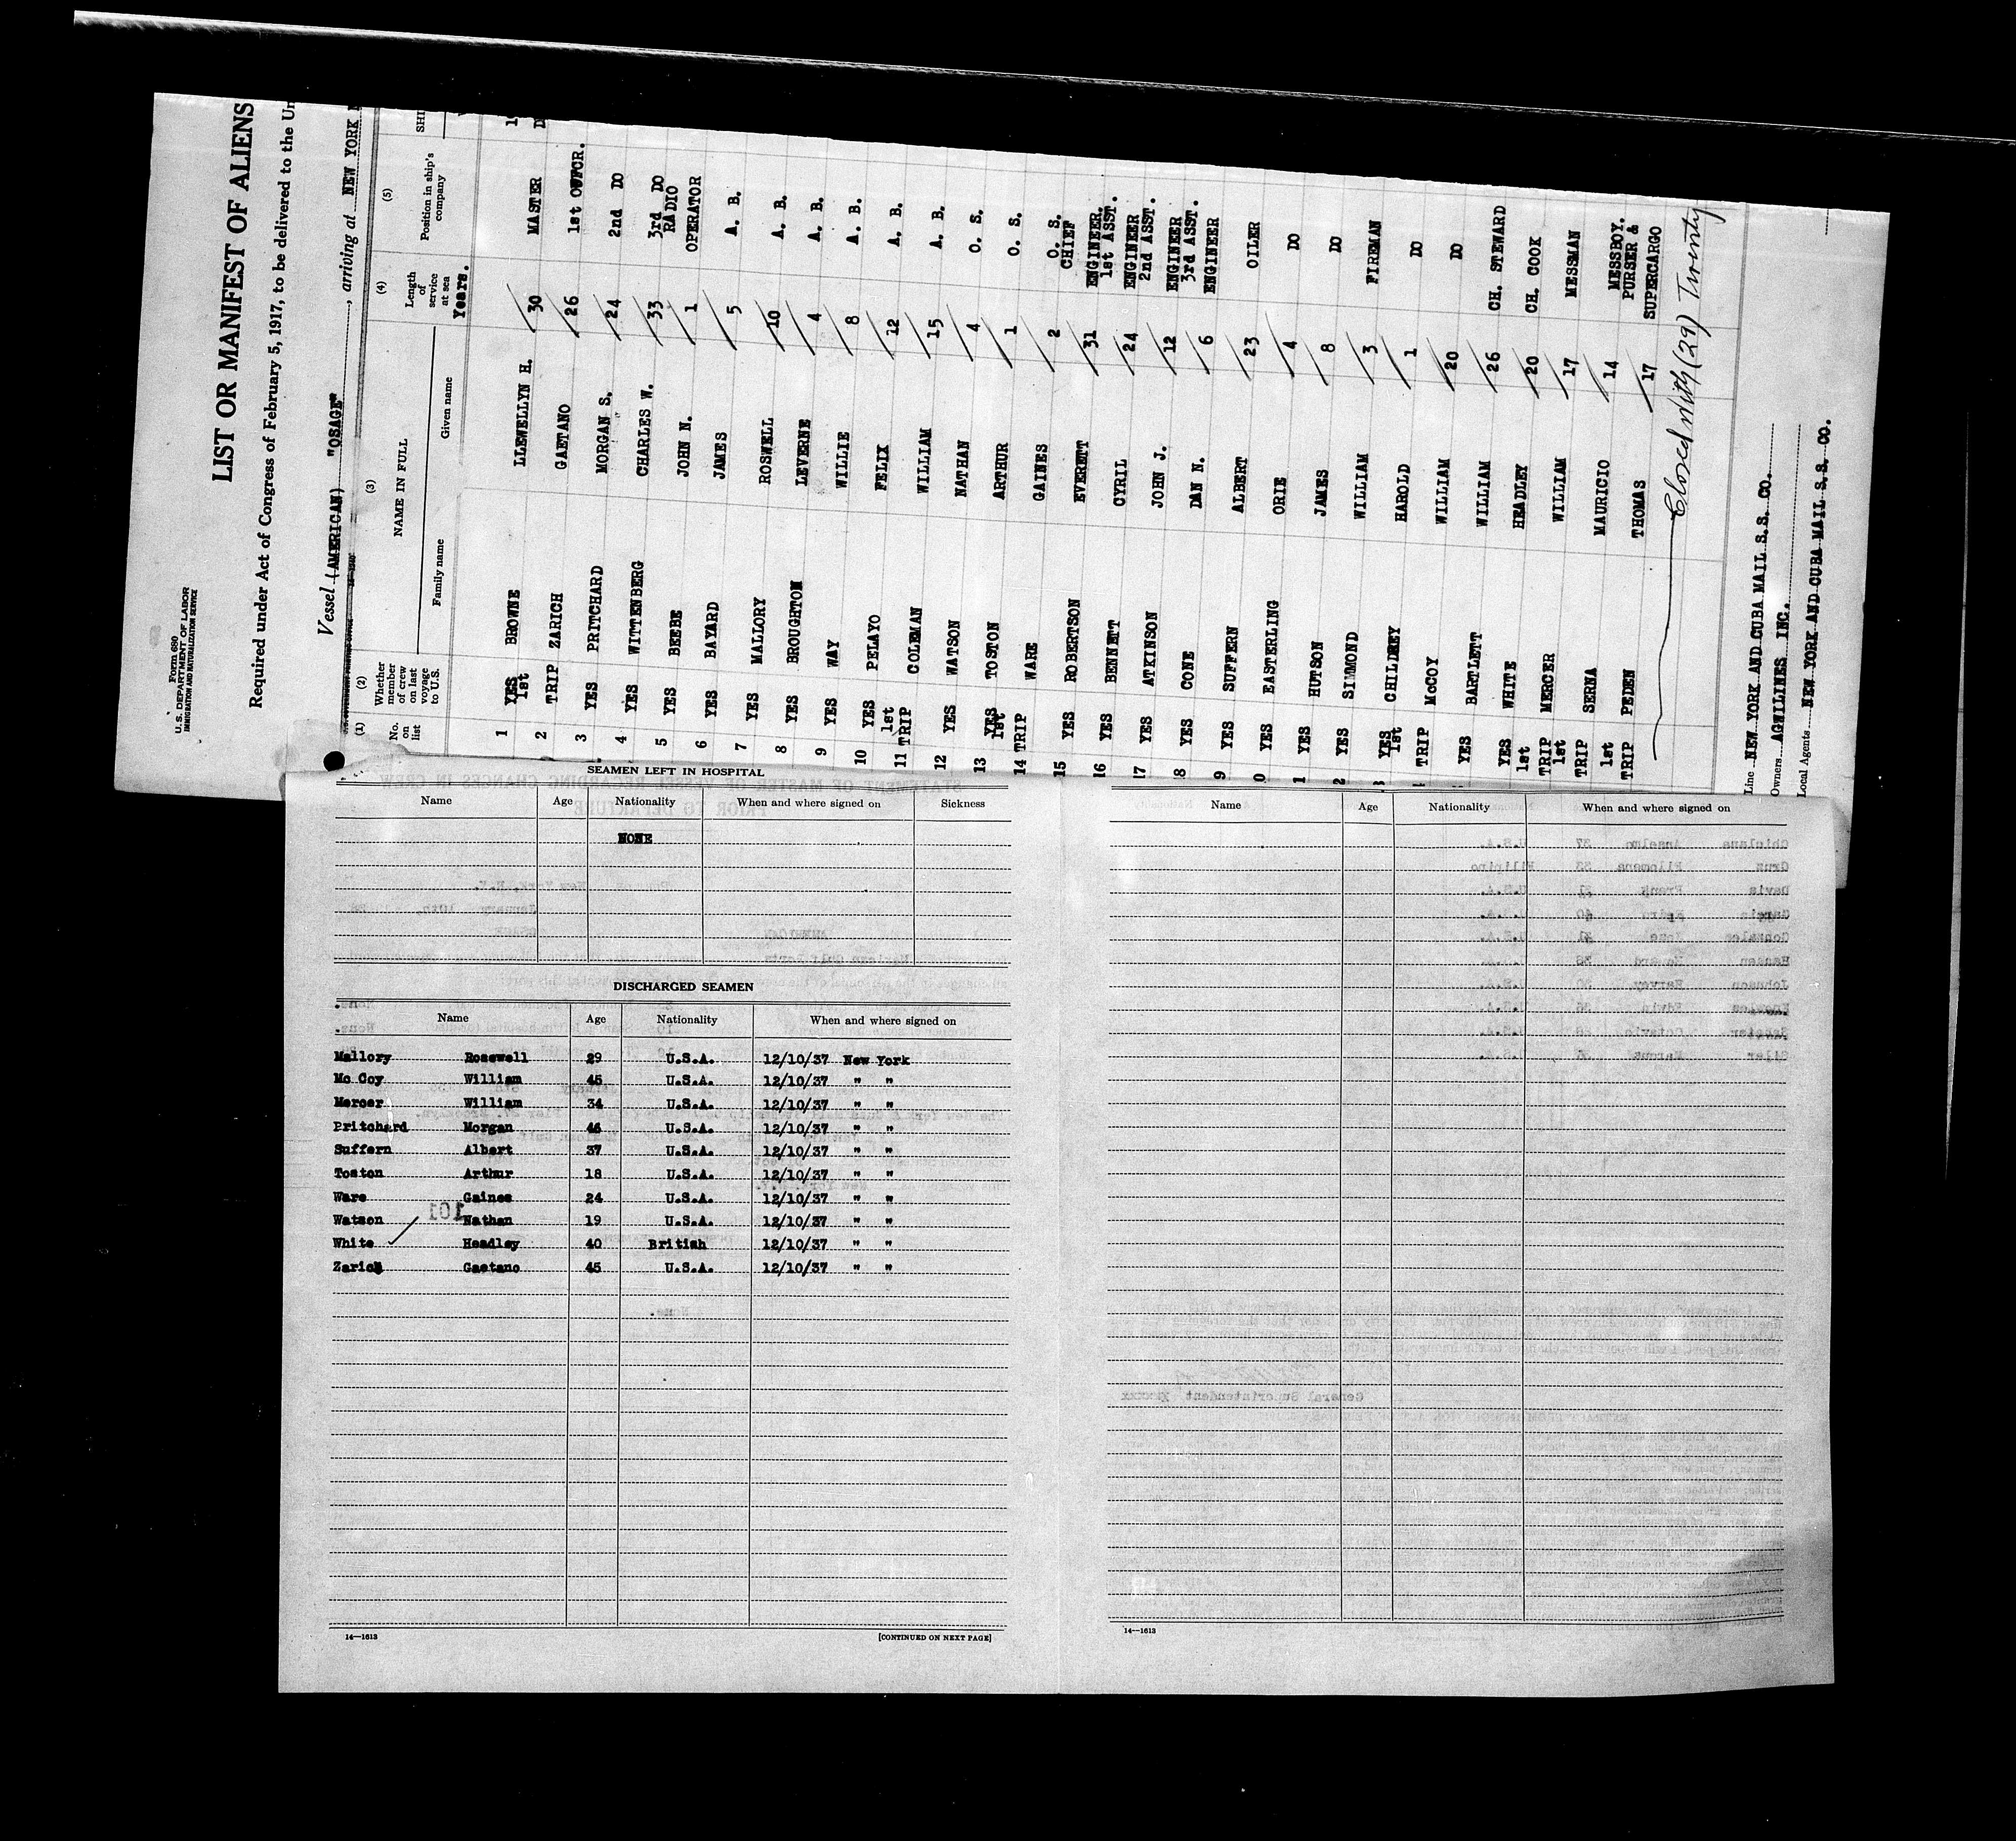 Form 680
U.S. DEPARTMENT OF LABOR
IMMIGRATION AND NATURALIZATION SERVICE
LIST OR MANIFEST OF ALIENS
Required under Act of Congress of February 5, 1917, to be delivered to the
Vessel (AMERICAN) "OSAGE", arriving at NEW YORK
(1) (2) (3) (4) (5)
No. on list
Whether member of crew on last voyage to U.S.
NAME IN FULL
Family name Given name
Length of service at sea
Years.
Position in ship's company
1 YES BROWNE LLEWELLYN H. 30 MASTER
2 1st TRIP ZARICH GAETANO 26 1st OFFCR.
3 YES PRITCHARD MORGAN S. 24 2nd DO
4 YES WITTENBERG CHARLES W. 33 3rd DO
5 YES BEEBE JOHN N. 1 RADIO OPERATOR
6 YES BAYARD JAMES 5 A. B.
7 YES MALLORY ROSWELL 10 A. B.
8 YES BROUGHTON LEVERNE 4 A. B.
9 YES WAY WILLIE 8 A. B.
10 YES PELAYO FELIX 12 A. B.
11 1st TRIP COLEMAN WILLIAM 15 A. B.
12 YES WATSON NATHAN 4 O. S.
13 YES TOSTON ARTHUR 1 O. S.
14 1st TRIP WARE GAINES 2 O. S.
15 YES ROBERTSON EVERETT 31 CHIEF ENGINEER.
16 YES BENNETT CYRIL 24 1st ASST. ENGINEER
17 YES ATKINSON JOHN J. 12 2nd ASST. ENGINEER
8 YES CONE DAN N. 6 3rd ASST. ENGINEER
9 YES SUFFERN ALBERT 23 OILER
0 YES EASTERLING ORIE 4 DO
1 YES HUTSON JAMES 8 DO
2 YES SIMMOND WILLIAM 3 FIREMAN
YES CHILDREY HAROLD 1 DO
1st TRIP McCOY WILLIAM 20 DO
YES BARTLETT WILLIAM 26 CH. STEWARD
YES WHITE HEADLEY 20 CH. COOK
1st TRIP MERCER WILLIAM 17 MESSMAN
1st TRIP SERNA MAURICIO 14 MESSBOY.
1st TRIP PEDEN THOMAS 17 PURSER & SUPERCARGO
Closed with (29) Twenty
Line NEW YORK AND CUBA MAIL S.S. CO.
Owners AGWILINES INC.
Local Agents NEW YORK AND CUBA MAIL S.S. CO.
SEAMEN LEFT IN HOSPITAL
Name Age Nationality When and where signed on Sickness
NONE
DISCHARGED SEAMEN
Name Age Nationality When and where signed on
Mallory Rosewell 29 U.S.A. 12/10/37 New York
Mc Coy William 45 U.S.A. 12/10/37 " "
Mercer William 34 U.S.A. 12/10/37 " "
Pritchard Morgan 46 U.S.A. 12/10/37 " "
Suffern Albert 37 U.S.A. 12/10/37 " "
Toston Arthur 18 U.S.A. 12/10/37 " "
Ware Gaines 24 U.S.A. 12/10/37 " "
Watson Nathan 19 U.S.A. 12/10/37 " "
White Headley 40 British 12/10/37 " "
Zarich Gaetano 45 U.S.A. 12/10/37 " "
14—1613
[CONTINUED ON NEXT PAGE]
Name Age Nationality When and where signed on
14—1613